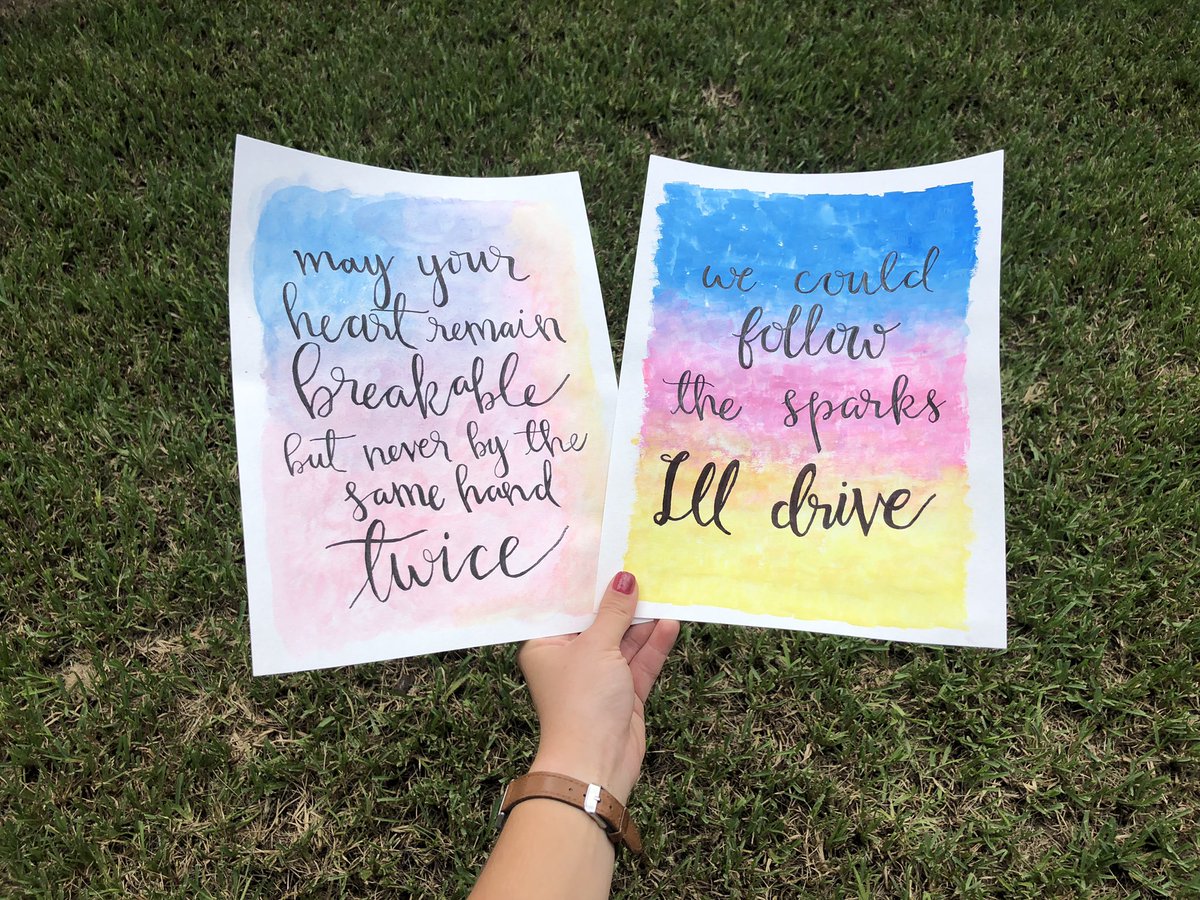 may your
heart remain
breakable
but never by the
same hand
twice
we could
follow
the sparks
I'll drive